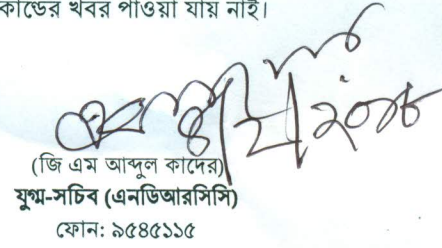 কান্ডের খবর পাওয়া যায় নাই।
(জি এম আব্দুল কাদের)
যুগ্ম-সচিব (এনডিআরসিসি)
ফোন: ৯৫৪৫১১৫